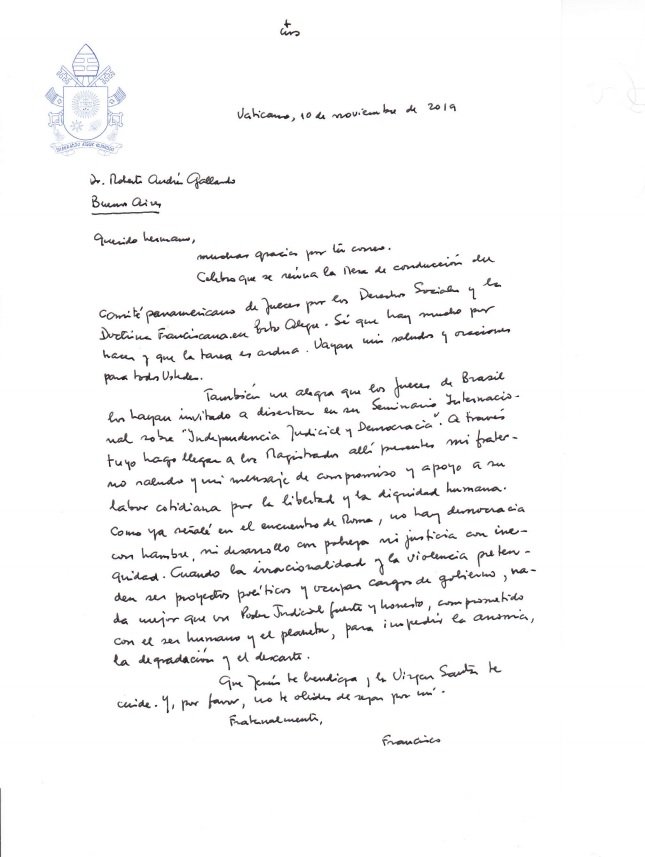 Vaticano, 10 de noviembre de 2019
Dr. Roberto Andrés Gallardo
Buenos Aires
Querido hermano,
muchas gracias por tu correo.
Celebro que se reúna la Mesa de conducción del
Comité panamericano de Jueces por los Derechos Sociales y la
Doctrina Franciscana en Porto Alegre. Sé que hay mucho por
hacer y que la tarea es ardua. Vayan mis saludos y oraciones
para todos Ustedes.
También me alegra que los jueces de Brasil
los hayan invitado a disertar en su Seminario Internacio-
nal sobre "Independencia Judicial y Democracia". A través
tuyo hago llegar a los Magistrados allí presentes mi frater-
no saludo y mi mensaje de compromiso y apoyo a su
labor cotidiana por la libertad y la dignidad humana.
Como ya señalé en el encuentro de Roma, no hay democracia
con hambre, ni desarrollo con pobreza ni justicia con ine-
quidad. Cuando la irracionalidad y la violencia preten-
den ser proyectos políticos y ocupan cargos de gobierno, na-
da mejor que un Poder Judicial fuerte y honesto, comprometido
con el ser humano y el planeta, para impedir la anomia,
la degradación y el descarte.
Que Jesús te bendiga y la Virgen Santa te
cuide. Y, por favor, no te olvides de rezar por mí.
Fraternalmente,
Francisco